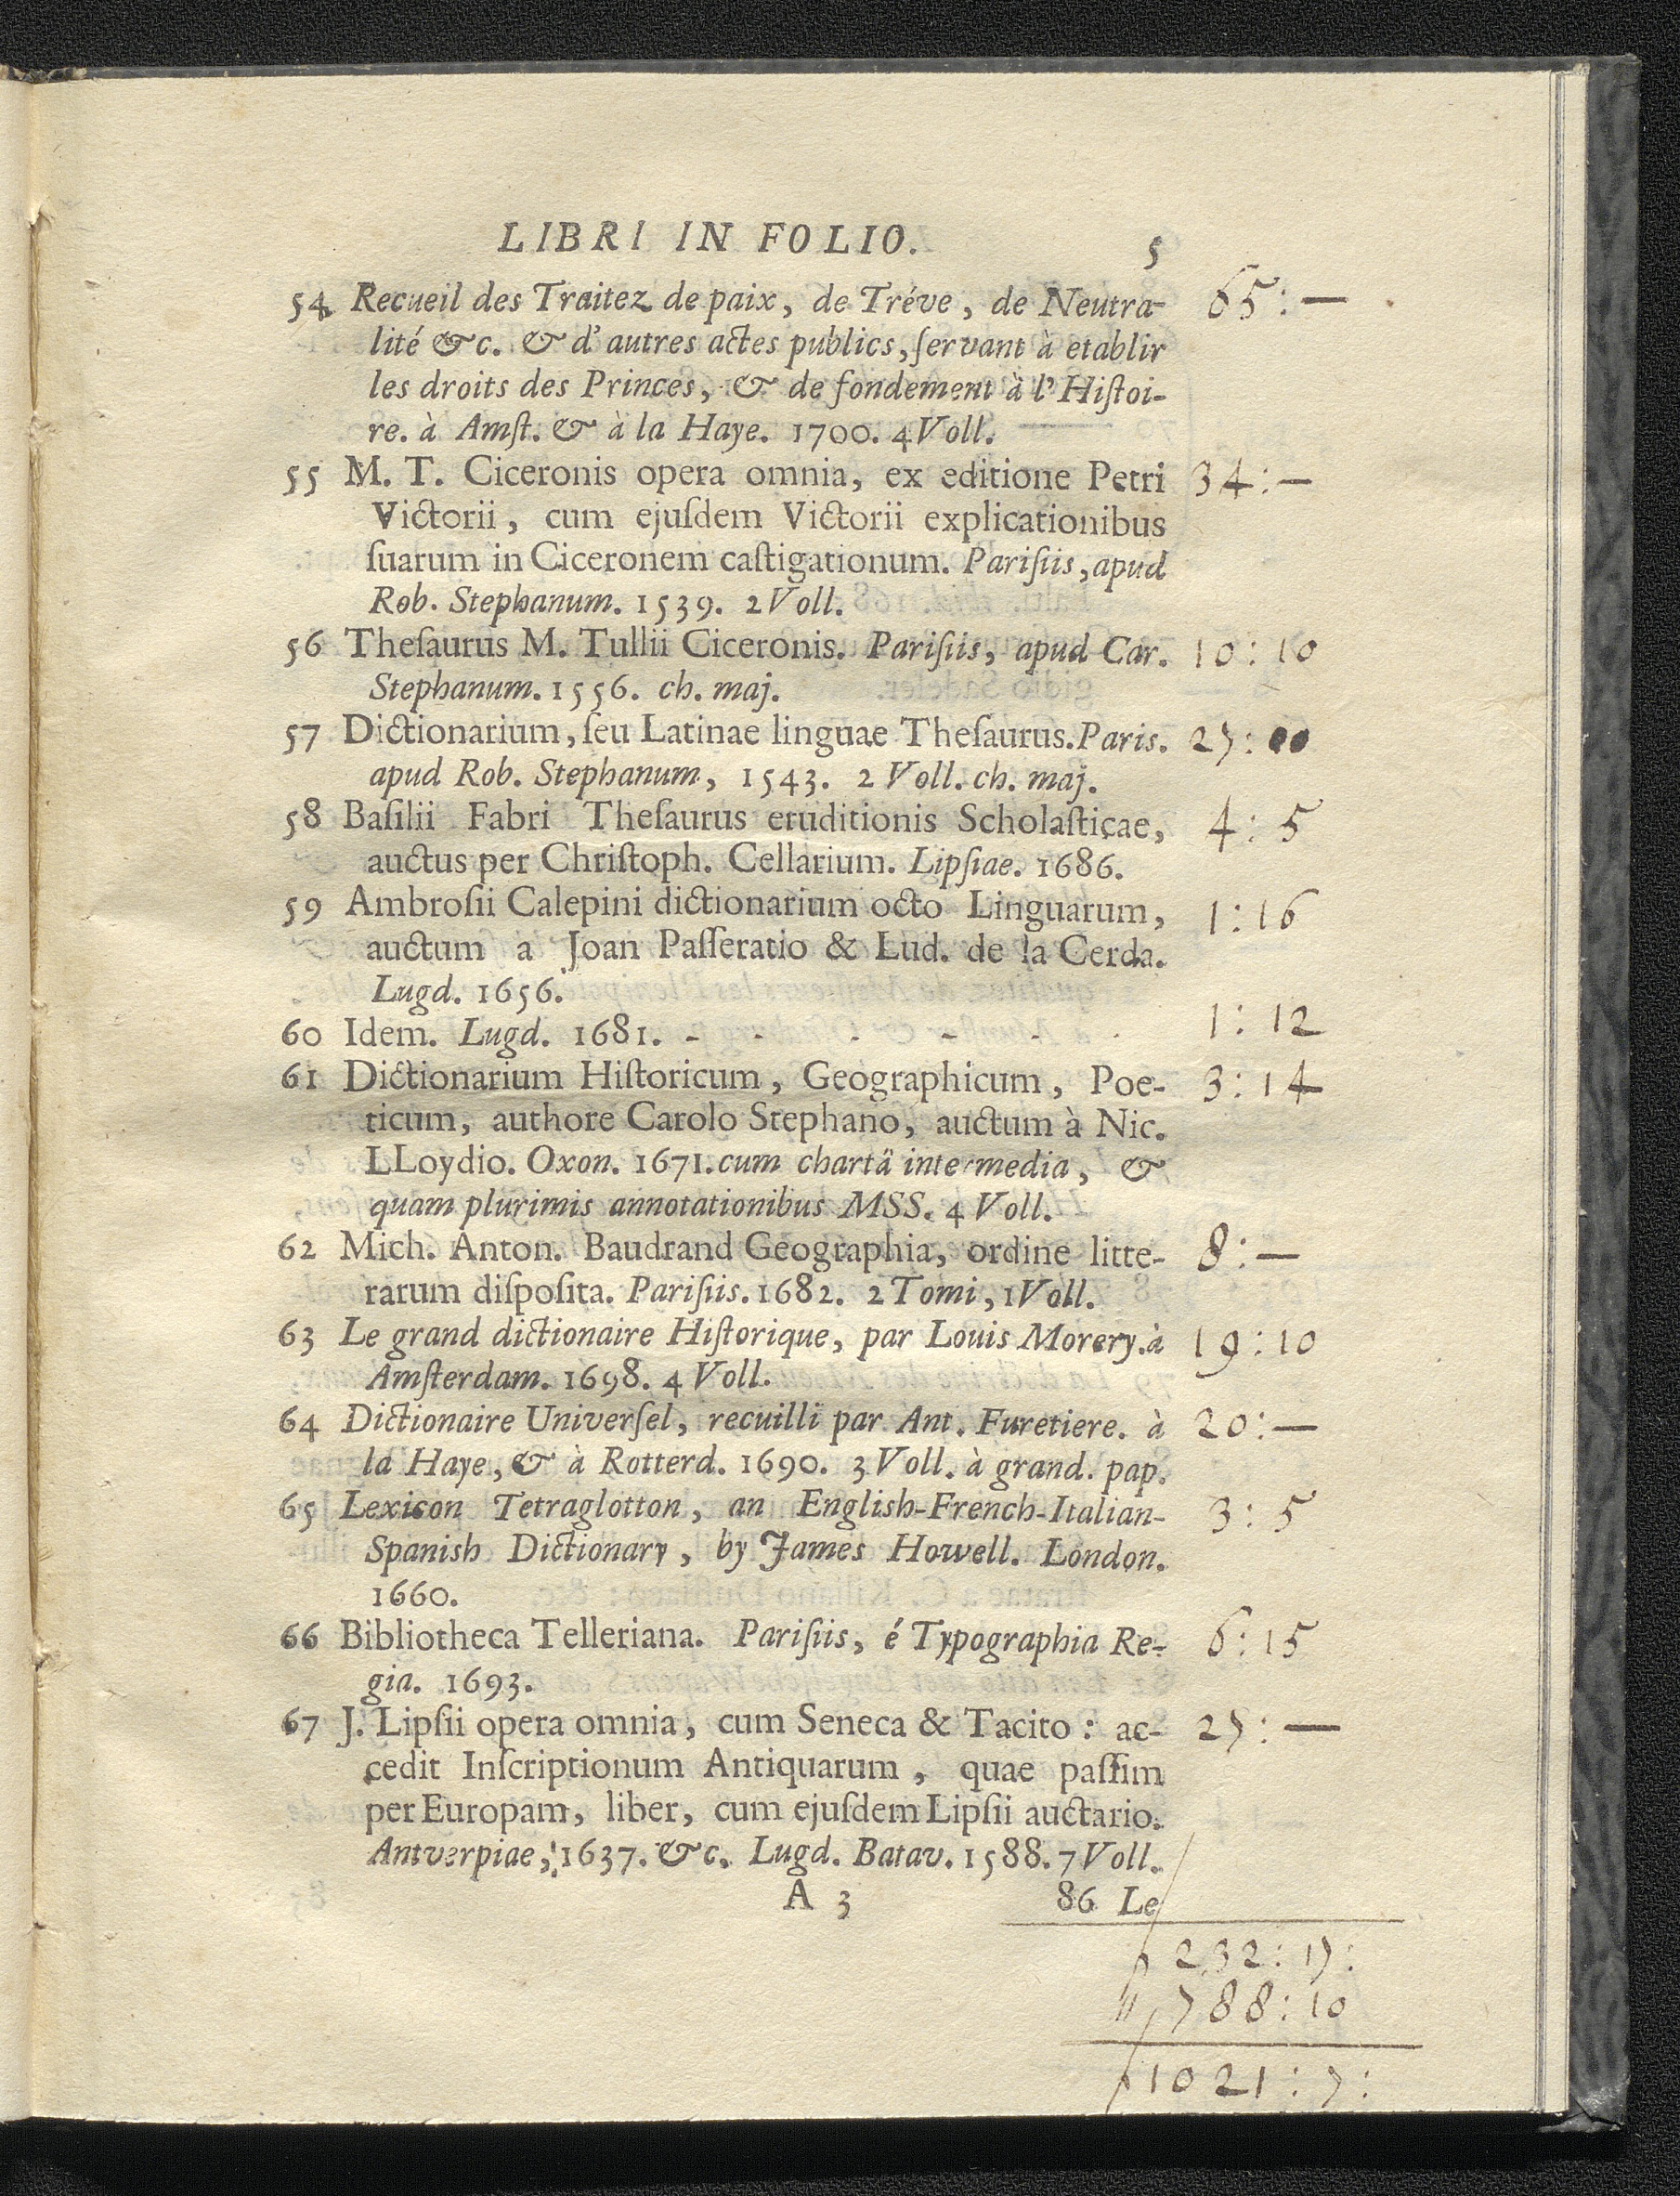 LIBRI IN FOLIO. 5
54 Recueil des Traitez de paix, de Tréve, de Neutra- 65:—
lité &c. & d'autres actes publics, ſervant à etablir
les droits des Princes, & de fondement à l'Hiſtoi-
re. à Amſt. & à la Haye. 1700. 4 Voll.
55 M. T. Ciceronis opera omnia, ex editione Petri 34:—
Victorii, cum ejuſdem Victorii explicationibus
ſuarum in Ciceronem caſtigationum. Pariſiis, apud
Rob. Stephanum. 1539. 2 Voll.
56 Theſaurus M. Tullii Ciceronis. Pariſiis, apud Car. 10:10
Stephanum. 1556. ch. maj.
57 Dictionarium, ſeu Latinae linguae Theſaurus. Paris. 27:
apud Rob. Stephanum, 1543. 2 Voll. ch. maj.
58 Baſilii Fabri Theſaurus eruditionis Scholaſticae, 4:5
auctus per Chriſtoph. Cellarium. Lipſiae. 1686.
59 Ambroſii Calepini dictionarium octo Linguarum, 1:16
auctum a Joan Paſſeratio & Lud. de la Cerda.
Lugd. 1656.
60 Idem. Lugd. 1681. - - - - - 1:12
61 Dictionarium Hiſtoricum, Geographicum, Poe- 3:14
ticum, authore Carolo Stephano, auctum à Nic.
LLoydio. Oxon. 1671. cum chartâ intermedia, &
quam plurimis annotationibus MSS. 4 Voll.
62 Mich. Anton. Baudrand Geographia, ordine litte- 8:—
rarum diſpoſita. Pariſiis. 1682. 2 Tomi, 1 Voll.
63 Le grand dictionaire Hiſtorique, par Louis Morery. à 19:10
Amſterdam. 1698. 4 Voll.
64 Dictionaire Univerſel, recuilli par Ant. Furetiere. à 20:—
la Haye, & à Rotterd. 1690. 3 Voll. à grand. pap.
65 Lexicon Tetraglotton, an English-French-Italian- 3:5
Spanish Dictionary, by James Howell. London.
1660.
66 Bibliotheca Telleriana. Pariſiis, é Typographia Re- 6:15
gia. 1693.
67 J. Lipſii opera omnia, cum Seneca & Tacito: ac- 27:—
cedit Inſcriptionum Antiquarum, quae paſſim
per Europam, liber, cum ejuſdem Lipſii auctario.
Antverpiae, 1637. &c. Lugd. Batav. 1588. 7 Voll.
A 3 86 Le
232:17:
788:10
1021:7: